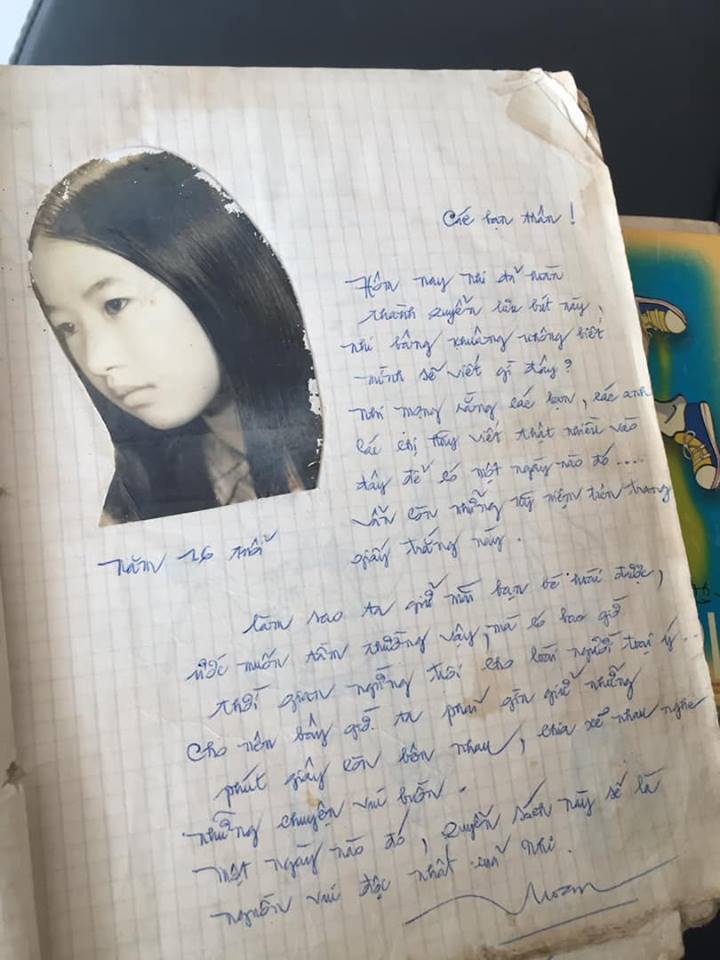 Các bạn thân !
Hôm nay nhi đã hoàn
thành quyển lưu bút này,
nhi bâng khuâng không biết
mình sẽ viết gì đây ?
nhi mong rằng các bạn, các anh
các chị hãy viết thật nhiều vào
đây để có một ngày nào đó ....
vẫn còn những kỷ niệm trên trang
giấy trắng này .
năm 16 tuổi
Làm sao ta giữ mãi bạn bè hoài được,
ước muốn tầm thường vậy, mà có bao giờ
thời gian ngừng trôi cho loài người toại ý ..
Cho nên bây giờ ta phải gìn giữ những
phút giây còn bên nhau, chia xẻ nhau nghe
những chuyện vui buồn .
một ngày nào đó, quyển sách này sẽ là
nguồn vui độc nhất của Nhi .